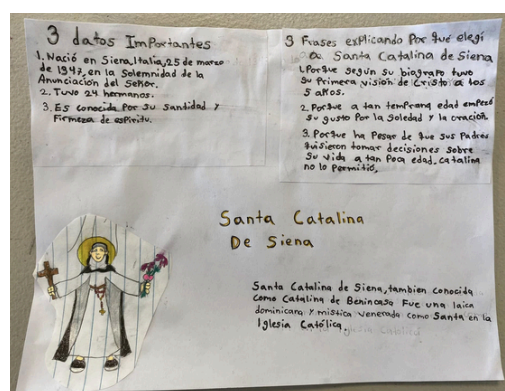 3 datos Importantes
1. Nació en Siena, Italia, 25 de marzo
de 1947, en la Solemnidad de la
Anunciación del Señor.
2. Tuvo 24 hermanos.
3. Es conocida por su santidad y
Firmeza de espíritu.
3 Frases explicando Por qué elegí
a Santa Catalina de Siena
1. Porque según su biografo tuvo
su Primera visión de Cristo a los
5 años.
2. Porque a tan temprana edad empezó
su gusto Por la soledad y la oración.
3. Porque ha Pesar de que sus Padres
quisieron tomar decisiones sobre
su vida a tan Poca edad, catalina
no lo Permitió.
Santa Catalina
De Siena
Santa Catalina de Siena, tambien conocida
como Catalina de Benincasa Fue una laica
dominicana y mistica venerada como Santa en la
Iglesia Católica.